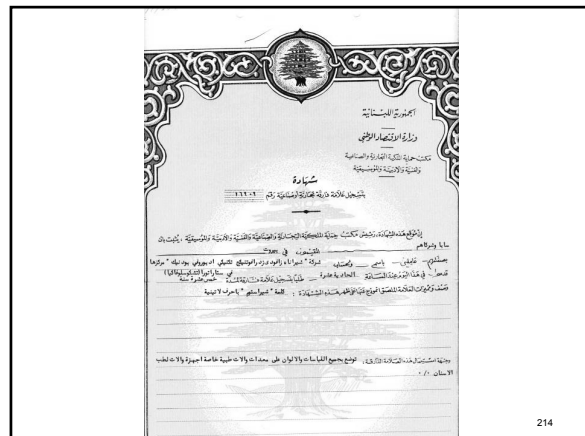 الجمهورية اللبنانية
وزارة الاقتصاد الوطني
مكتب حماية الملكية التجارية والصناعية
والفنية والأدبية والموسيقية
شهادة
بتسجيل علامة فارقة تجارية أو صناعية رقم ١٦٩٠٦
إن موقع هذه الشهادة، رئيس مكتب حماية الملكية التجارية والصناعية والفنية والأدبية والموسيقية، يثبت بأن
سابا وشركاهم
المقيمون في بيروت
بصفتهم باسم ولحساب شركة
قدموا في هذا اليوم عند الساعة الحادية عشرة طلبا بتسجيل علامة فارقة لمدة خمس عشرة سنة
وصف ومميزات العلامة الملصق نموذج عنها على ظهر هذه الشهادة: كلمة باحرف لاتينية
وجهة استعمال هذه العلامة الفارقة: توضع بجميع القياسات والالوان على معدات والات طبية خاصة اجهزة والات لطب
الاسنان
214